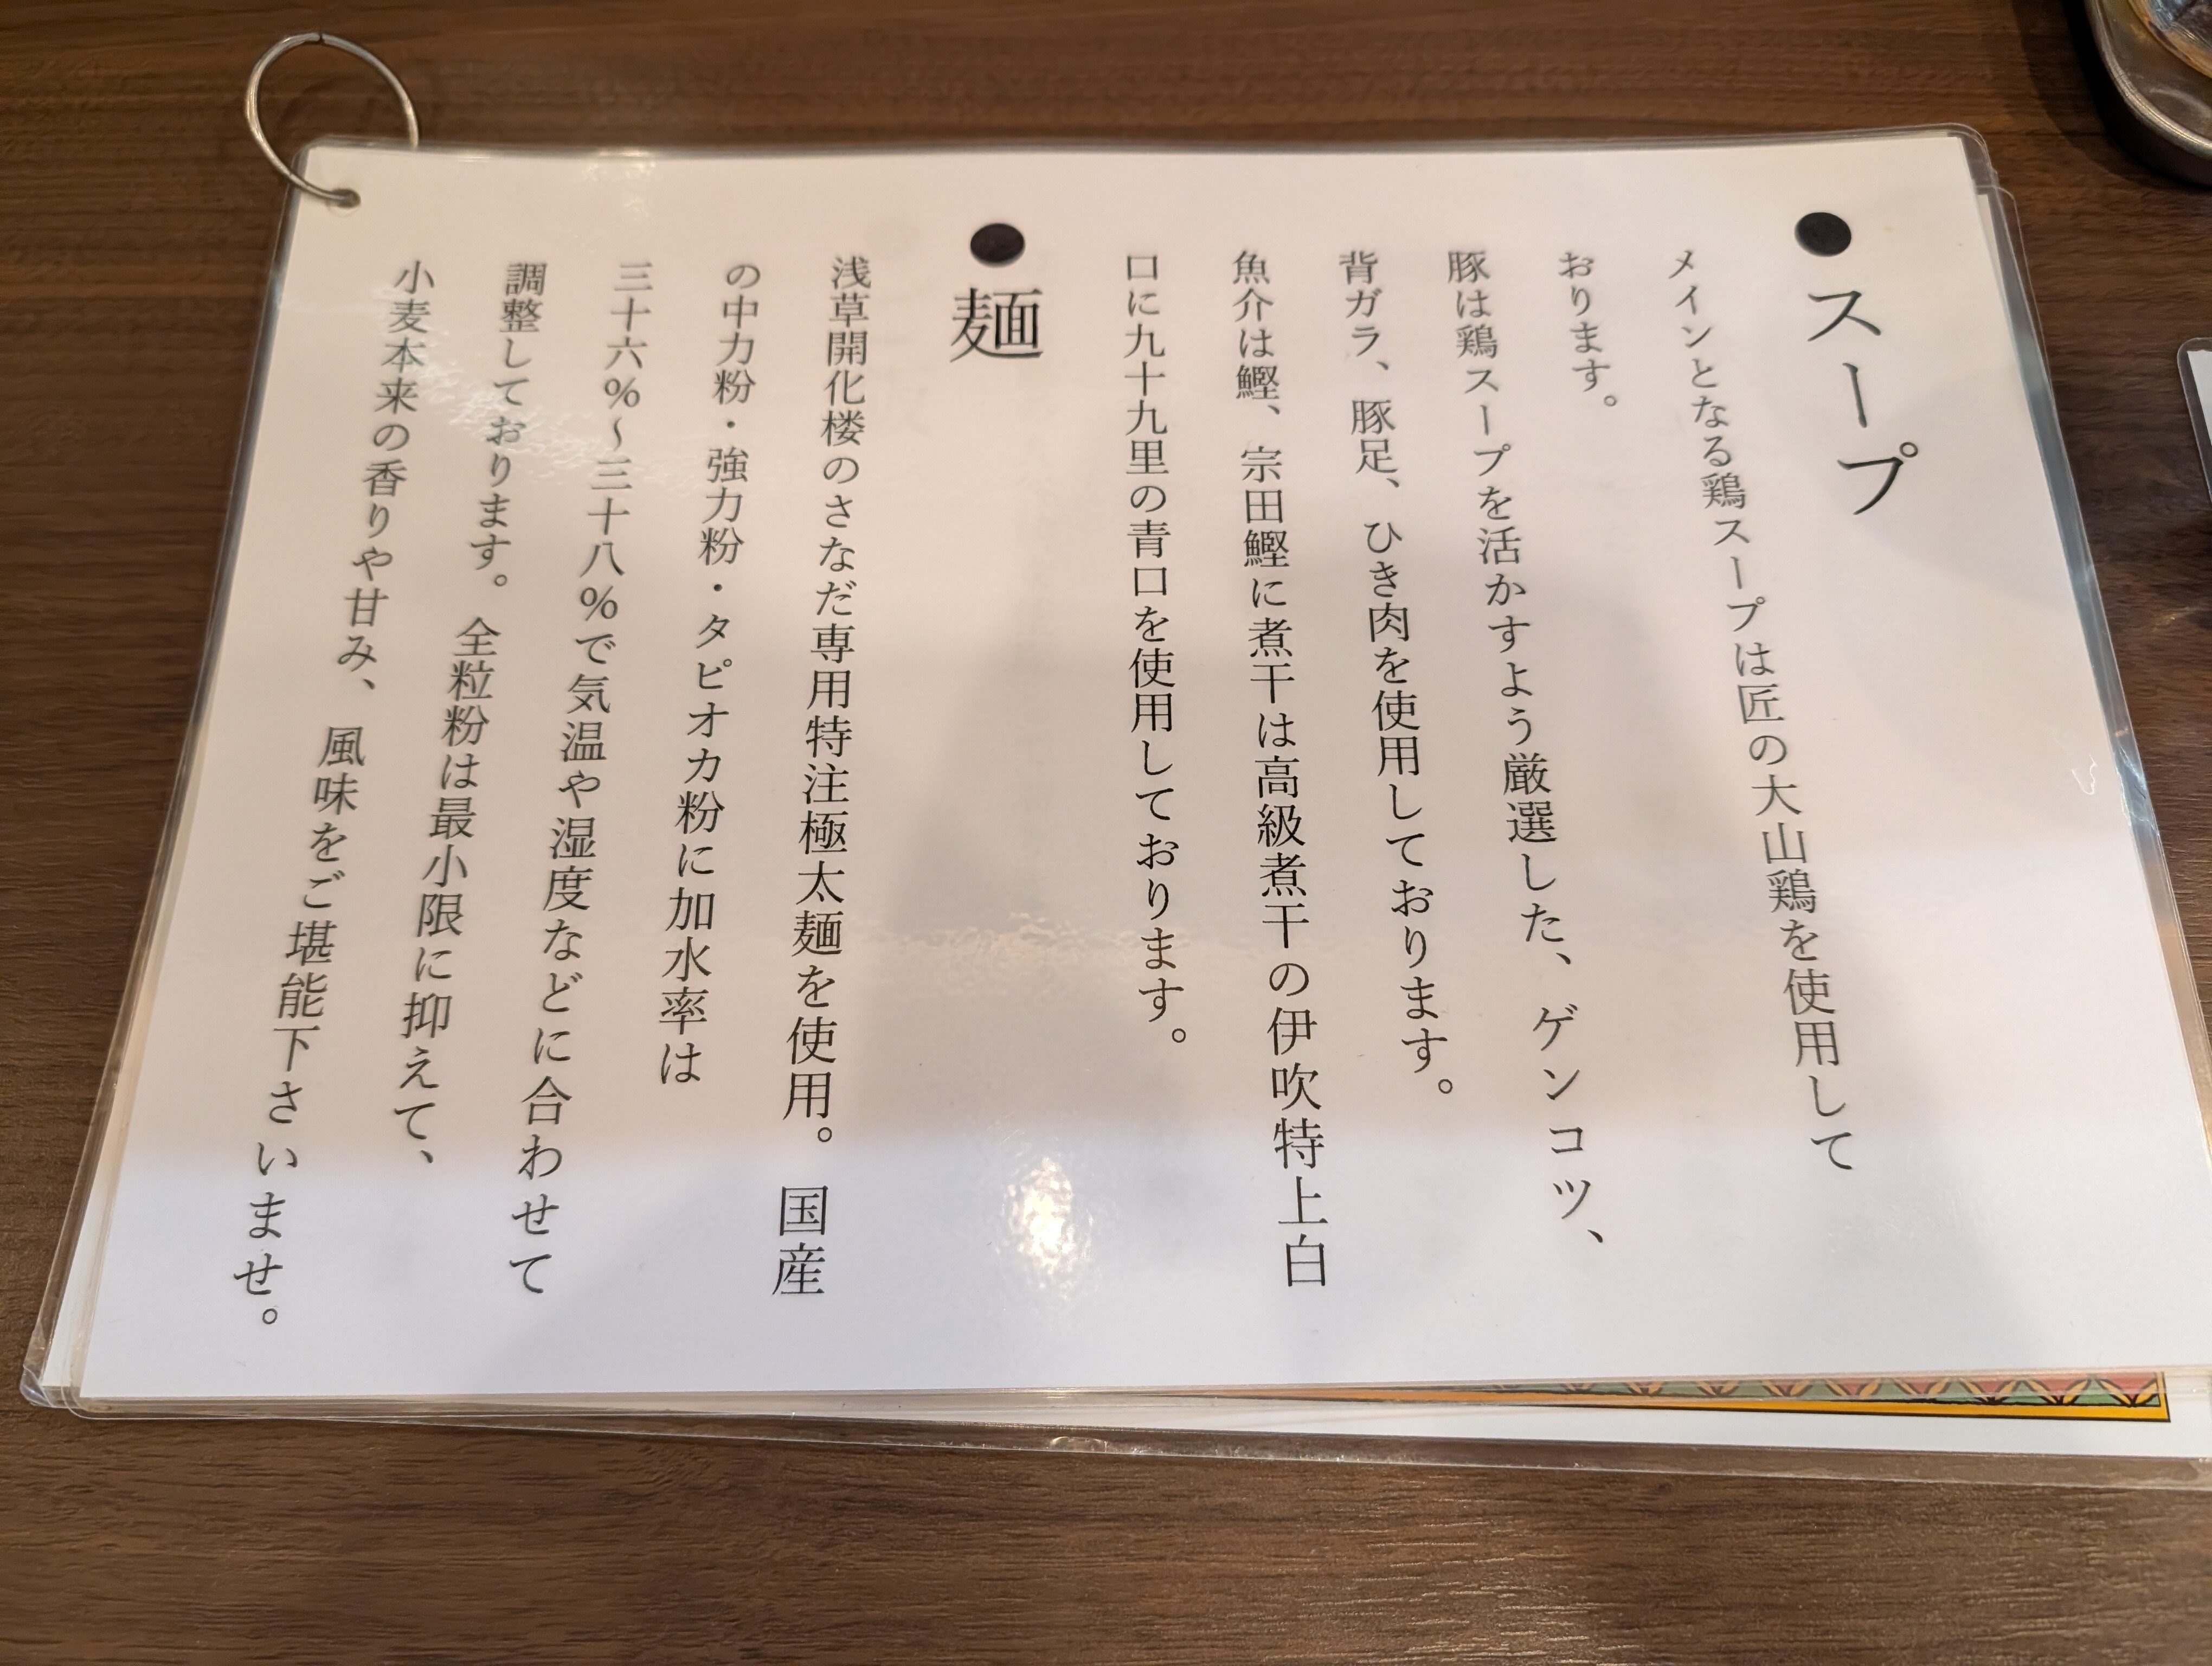 ●スープ
メインとなる鶏スープは匠の大山鶏を使用して
おります。
豚は鶏スープを活かすよう厳選した、ゲンコツ、
背ガラ、豚足、ひき肉を使用しております。
魚介は鰹、宗田鰹に煮干は高級煮干の伊吹特上白
口に九十九里の青口を使用しております。
●麺
浅草開化楼のさなだ専用特注極太麺を使用。国産
の中力粉・強力粉・タピオカ粉に加水率は
三十六%～三十八%で気温や湿度などに合わせて
調整しております。全粒粉は最小限に抑えて、
小麦本来の香りや甘み、風味をご堪能下さいませ。